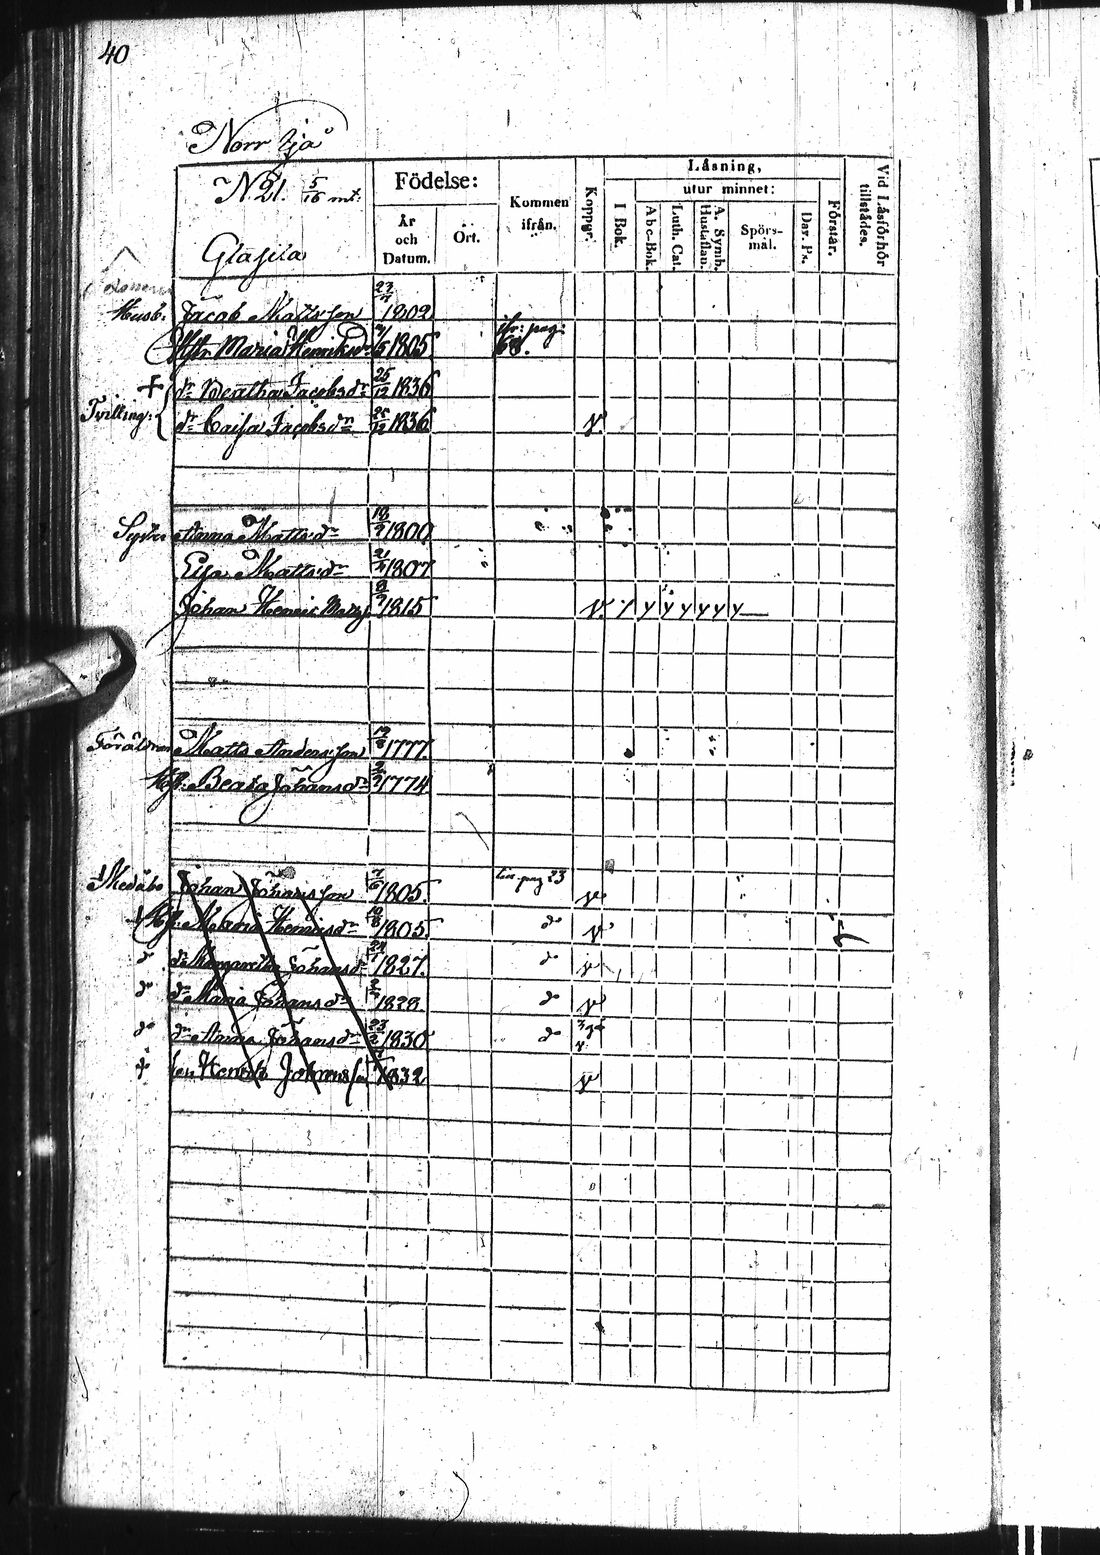 40
Norr
N:21. 5/16 mt:
Födelse:
År och Datum.
Ort.
Kommen ifrån.
Koppgr.
Läsning,
I Bok.
utur minnet:
Abc-Bok.
Luth. Cat.
A. Symb. Hustaflan.
Spörs-mål.
Dav. Ps.
Förstår.
Vid Läsförhör tillstädes.
Husb: Jacob Mattsson 1802
Hstr Maria Henriksdr 1805 pag: 68.
+ dr Beatha Jacobsdr 25/12 1836
Tvilling: dr Caisa Jacobsdr 25/12 1836 v
Anna Mattsdr 1800
Eva Mattsdr 1807
Johan Henric 1815 v
Föräldrar Matts Andersson 1777.
Beata Johansdr 1774
Johan Johansson 1805. pag 23 v
Maria Henricsdr 1805 do v
do dr Margaretha Johansdr 1827. do v
do dr Maria Johansdr do v
do dr Anna Johansdr 23/2 1830 do v
+ son Henrik Johansson 1832 v